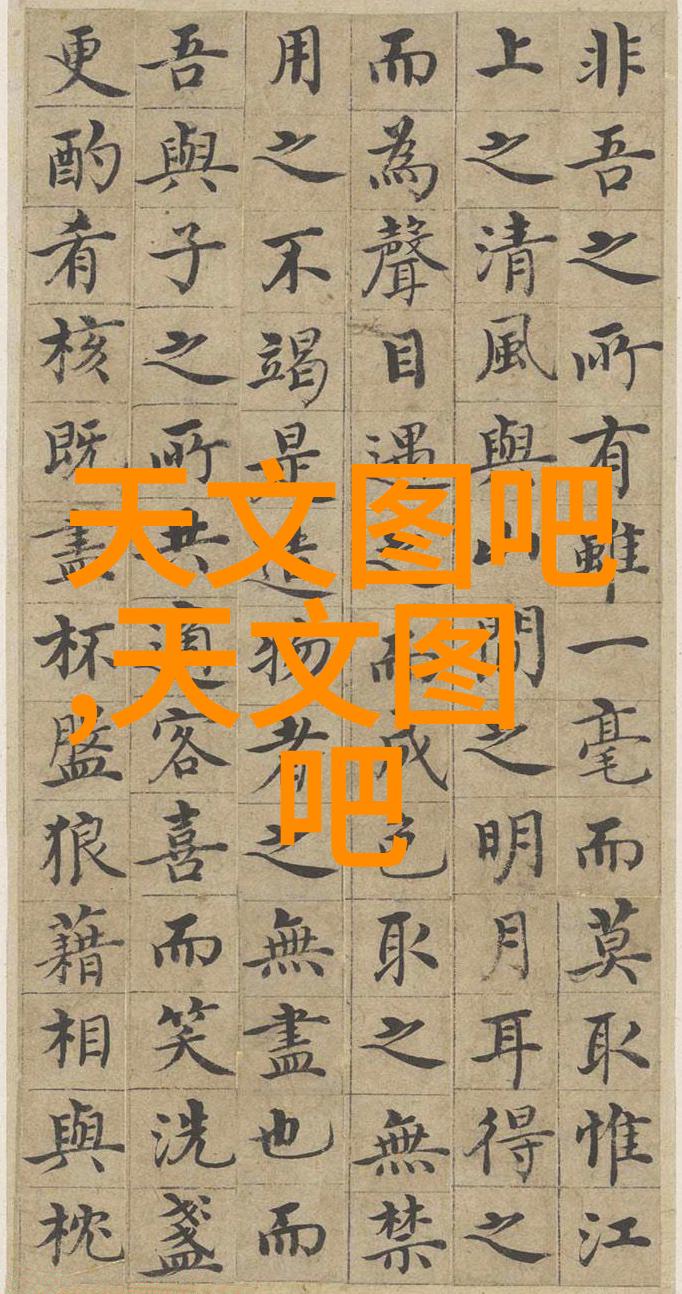 非吾之所有雖一毫而莫取惟江
上之清風與山間之明月耳得之
而為聲目遇之而成色取之無禁
用之不竭是造物者之無盡也而
吾與子之所共適客喜而笑洗盞
更酌肴核既盡杯盤狼藉相與枕
天文图吧
,天文图
吧